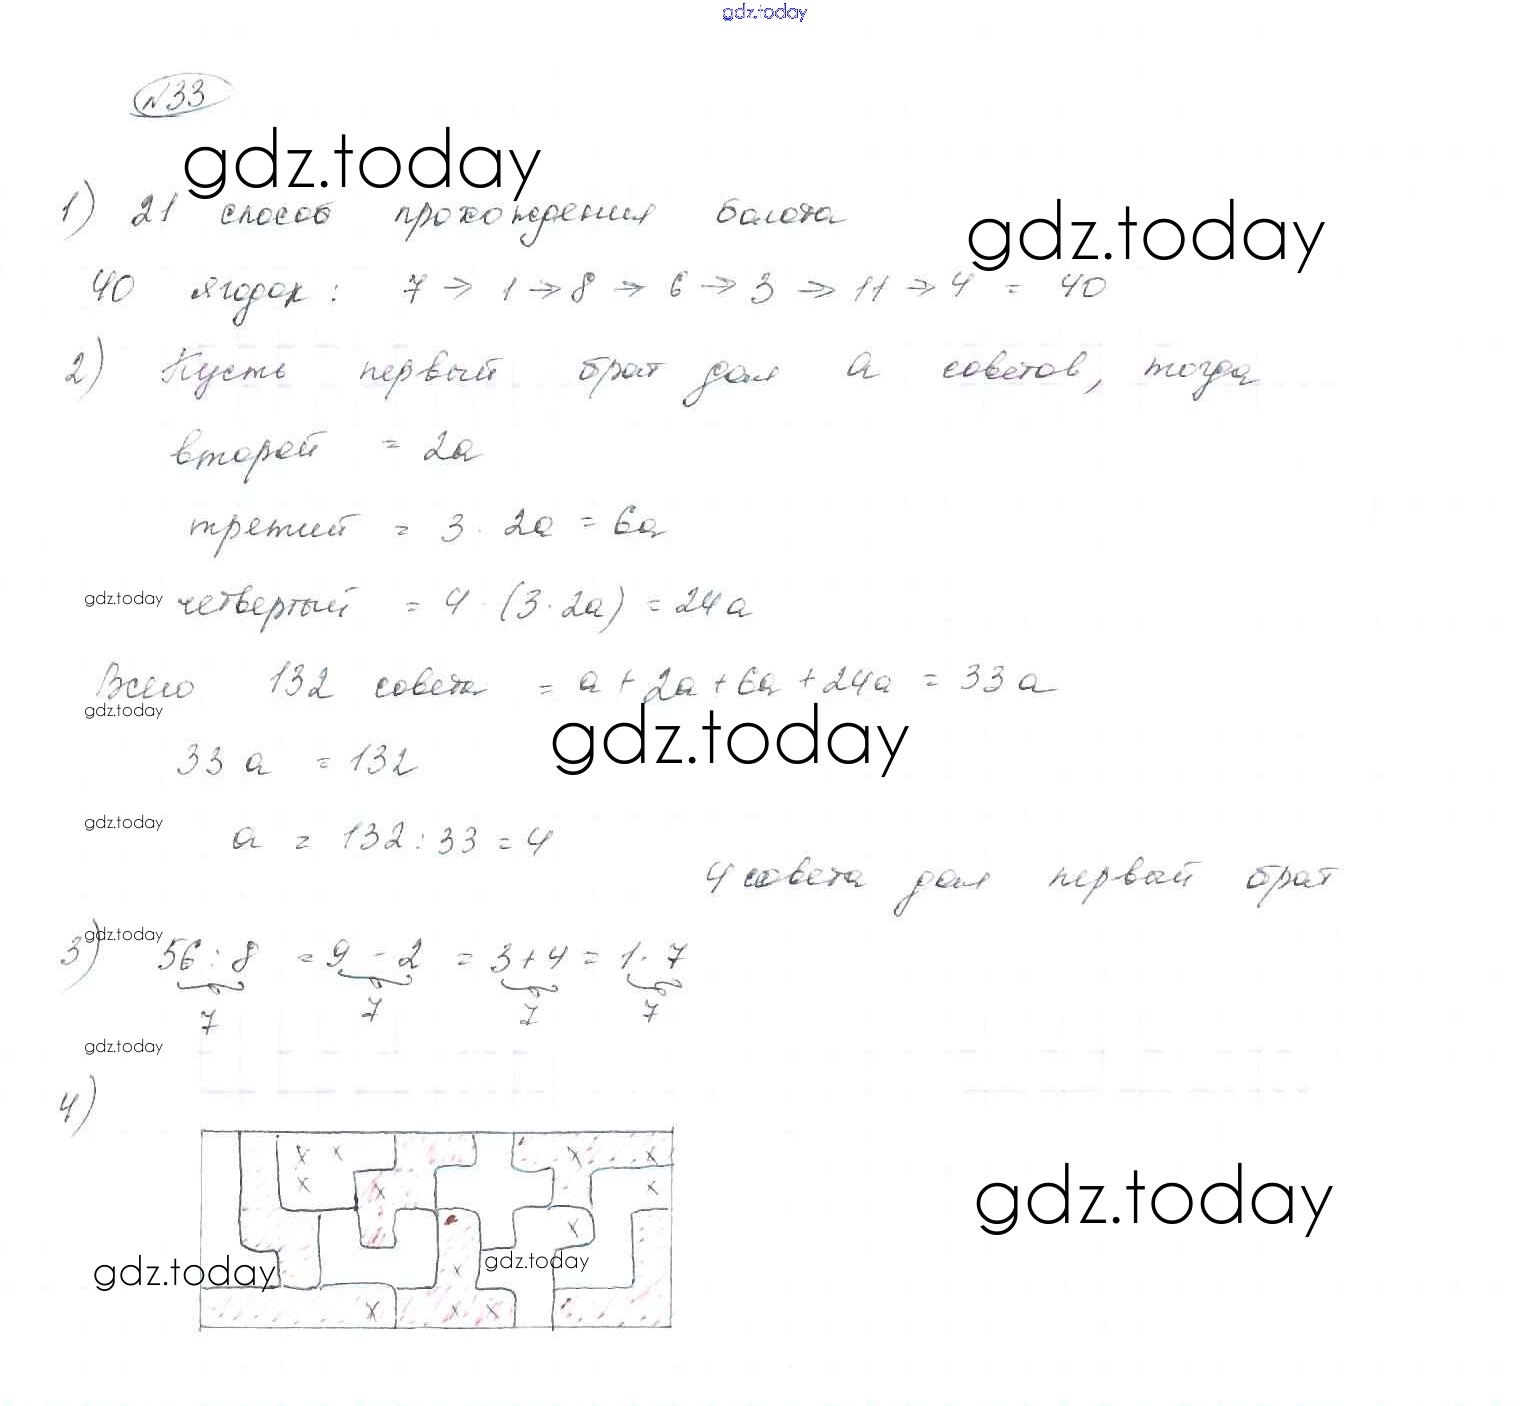 gdz.today
№33
gdz.today
1) 21 способ прохождения болота
gdz.today
40 ягодок : 7 → 1 → 8 → 6 → 3 → 11 → 4 = 40
2) Пусть первый брат дал a советов, тогда
второй = 2a
третий = 3 · 2a = 6a
gdz.today
четвертый = 4 · (3 · 2a) = 24a
Всего 132 совета = a + 2a + 6a + 24a = 33a
gdz.today
gdz.today
33a = 132
gdz.today
a = 132 : 33 = 4
4 совета дал первый брат
gdz.today
3) 56 : 8 = 9 - 2 = 3 + 4 = 1 · 7
7 7 7 7
gdz.today
4)
x x x x
x x x
gdz.today
x
gdz.today
gdz.today
x
x x x